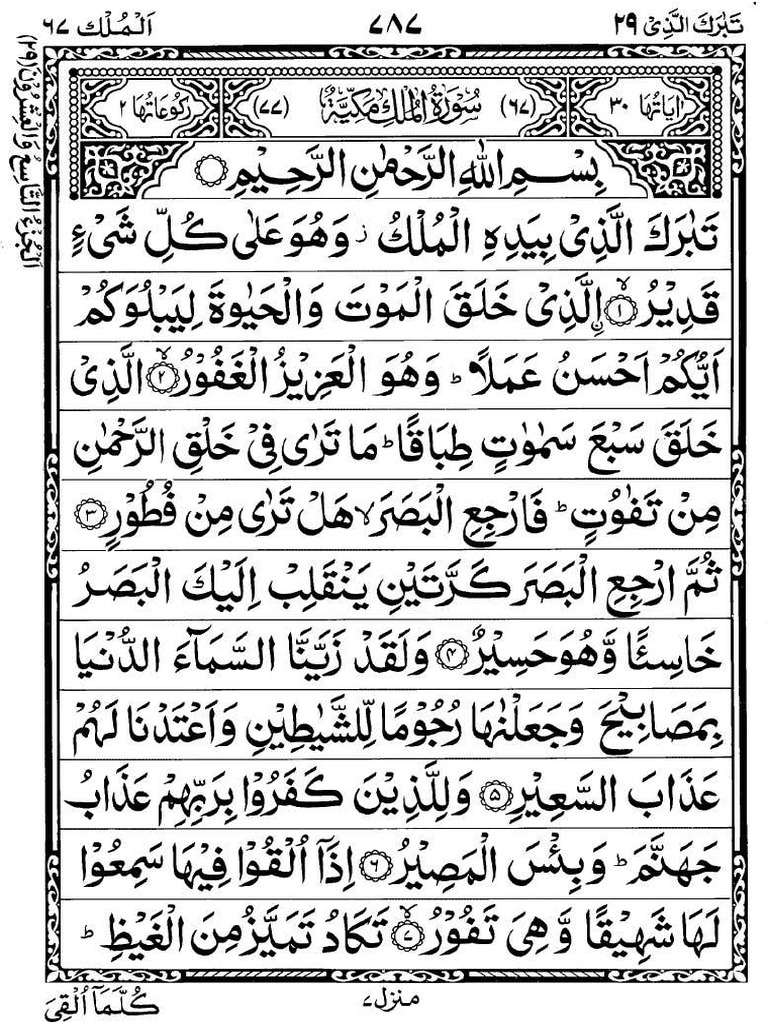 تَبٰرَكَ الَّذِیْ ٢٩
٧٨٧
اَلْمُلْك ٦٧
اٰیَاتُهَا ٣٠
(٦٧) سُوْرَةُ الْمُلْكِ مَكِّيَّةٌ (٧٧)
رُكُوْعَاتُهَا ٢
بِسْمِ اللّٰهِ الرَّحْمٰنِ الرَّحِیْمِ
تَبٰرَكَ الَّذِیْ بِیَدِهِ الْمُلْكُ ؗ وَهُوَ عَلٰی كُلِّ شَیْءٍ
قَدِیْرُ ۙ﴿١﴾ ۨالَّذِیْ خَلَقَ الْمَوْتَ وَالْحَیٰوةَ لِیَبْلُوَكُمْ
اَیُّكُمْ اَحْسَنُ عَمَلًا ؕ وَهُوَ الْعَزِیْزُ الْغَفُوْرُ ۙ﴿٢﴾ الَّذِیْ
خَلَقَ سَبْعَ سَمٰوٰتٍ طِبَاقًا ؕ مَا تَرٰی فِیْ خَلْقِ الرَّحْمٰنِ
مِنْ تَفٰوُتٍ ؕ فَارْجِعِ الْبَصَرَ ۙ هَلْ تَرٰی مِنْ فُطُوْرٍ ﴿٣﴾
ثُمَّ ارْجِعِ الْبَصَرَ كَرَّتَیْنِ یَنْقَلِبْ اِلَیْكَ الْبَصَرُ
خَاسِئًا وَّهُوَ حَسِیْرٌ ﴿٤﴾ وَلَقَدْ زَیَّنَّا السَّمَآءَ الدُّنْیَا
بِمَصَابِیْحَ وَجَعَلْنٰهَا رُجُوْمًا لِّلشَّیٰطِیْنِ وَاَعْتَدْنَا لَهُمْ
عَذَابَ السَّعِیْرِ ﴿٥﴾ وَلِلَّذِیْنَ كَفَرُوْا بِرَبِّهِمْ عَذَابُ
جَهَنَّمَ ؕ وَبِئْسَ الْمَصِیْرُ ﴿٦﴾ اِذَاۤ اُلْقُوْا فِیْهَا سَمِعُوْا
لَهَا شَهِیْقًا وَّهِیَ تَفُوْرُ ۙ﴿٧﴾ تَكَادُ تَمَیَّزُ مِنَ الْغَیْظِ ؕ
منزل ٧
كُلَّمَاۤ اُلْقِیَ
اَلْجُزْءُ التَّاسِعُ وَالْعِشْرُوْنَ (٢٩)